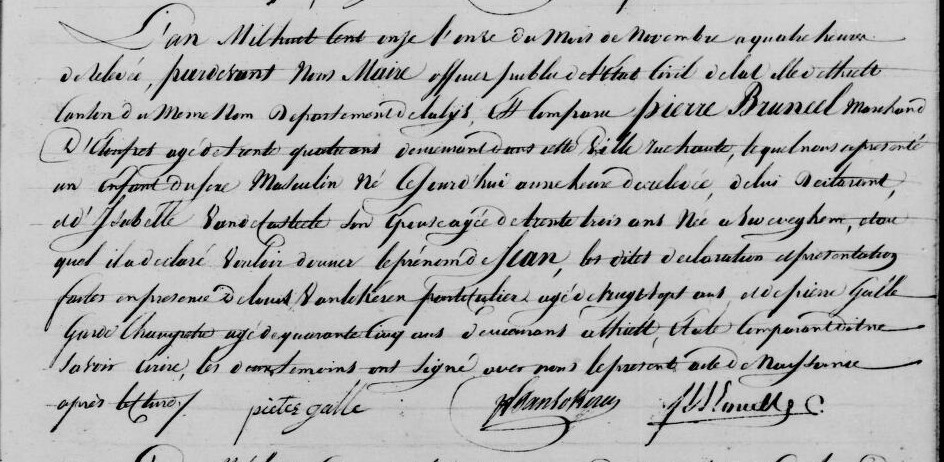 L'an Mil huit Cent onze l'onze du Mois de Novembre a quatre heures
de relevée, pardevant Nous Maire officier public de l'Etat Civil de la Ville de thielt
Canton du Meme Nom Departement de la lijs, Est Comparu pierre Bruneel Marchand
D'Etoffes agé de trente quatre ans demeurant dans cette Ville rue haute, le quel nous a presenté
un Enfant du sexe Masculin Né Ce Jourd'hui a une heure de relevée, de lui Declarant,
et d'Isabelle Vande Casteele Son Epouse agée de trente trois ans Née a Sweveghem, et au
quel il a declaré Vouloir donner le prenom de Jean, les dites declaration et presentation
faites en presence de Louis particulier agé de vingt sept ans, et de pierre Galle
Garde Champetre agé de quarante Cinq ans demeurans a thielt, Et a le Comparant dit ne
Savoir Ecrire, les deux temoins ont Signé avec nous le present acte de Naissance
après lecture
pieter galle